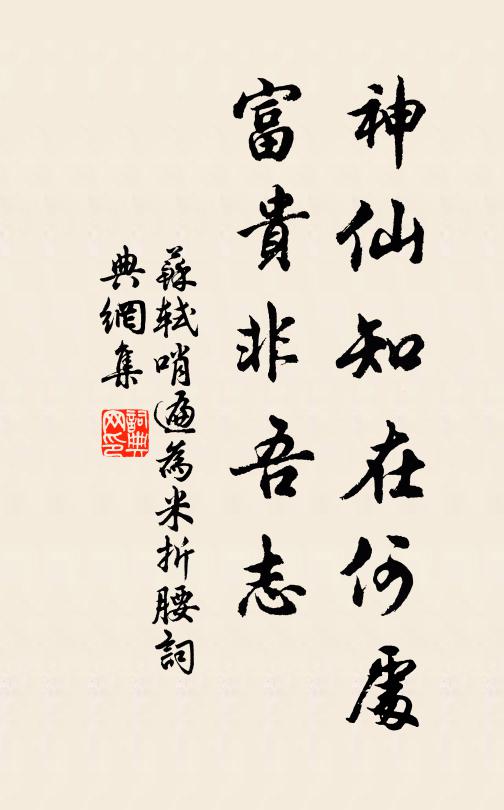 神仙知在何處
富貴非吾志
蘇軾哨遍為米折腰詞
典網集
詞典
网印